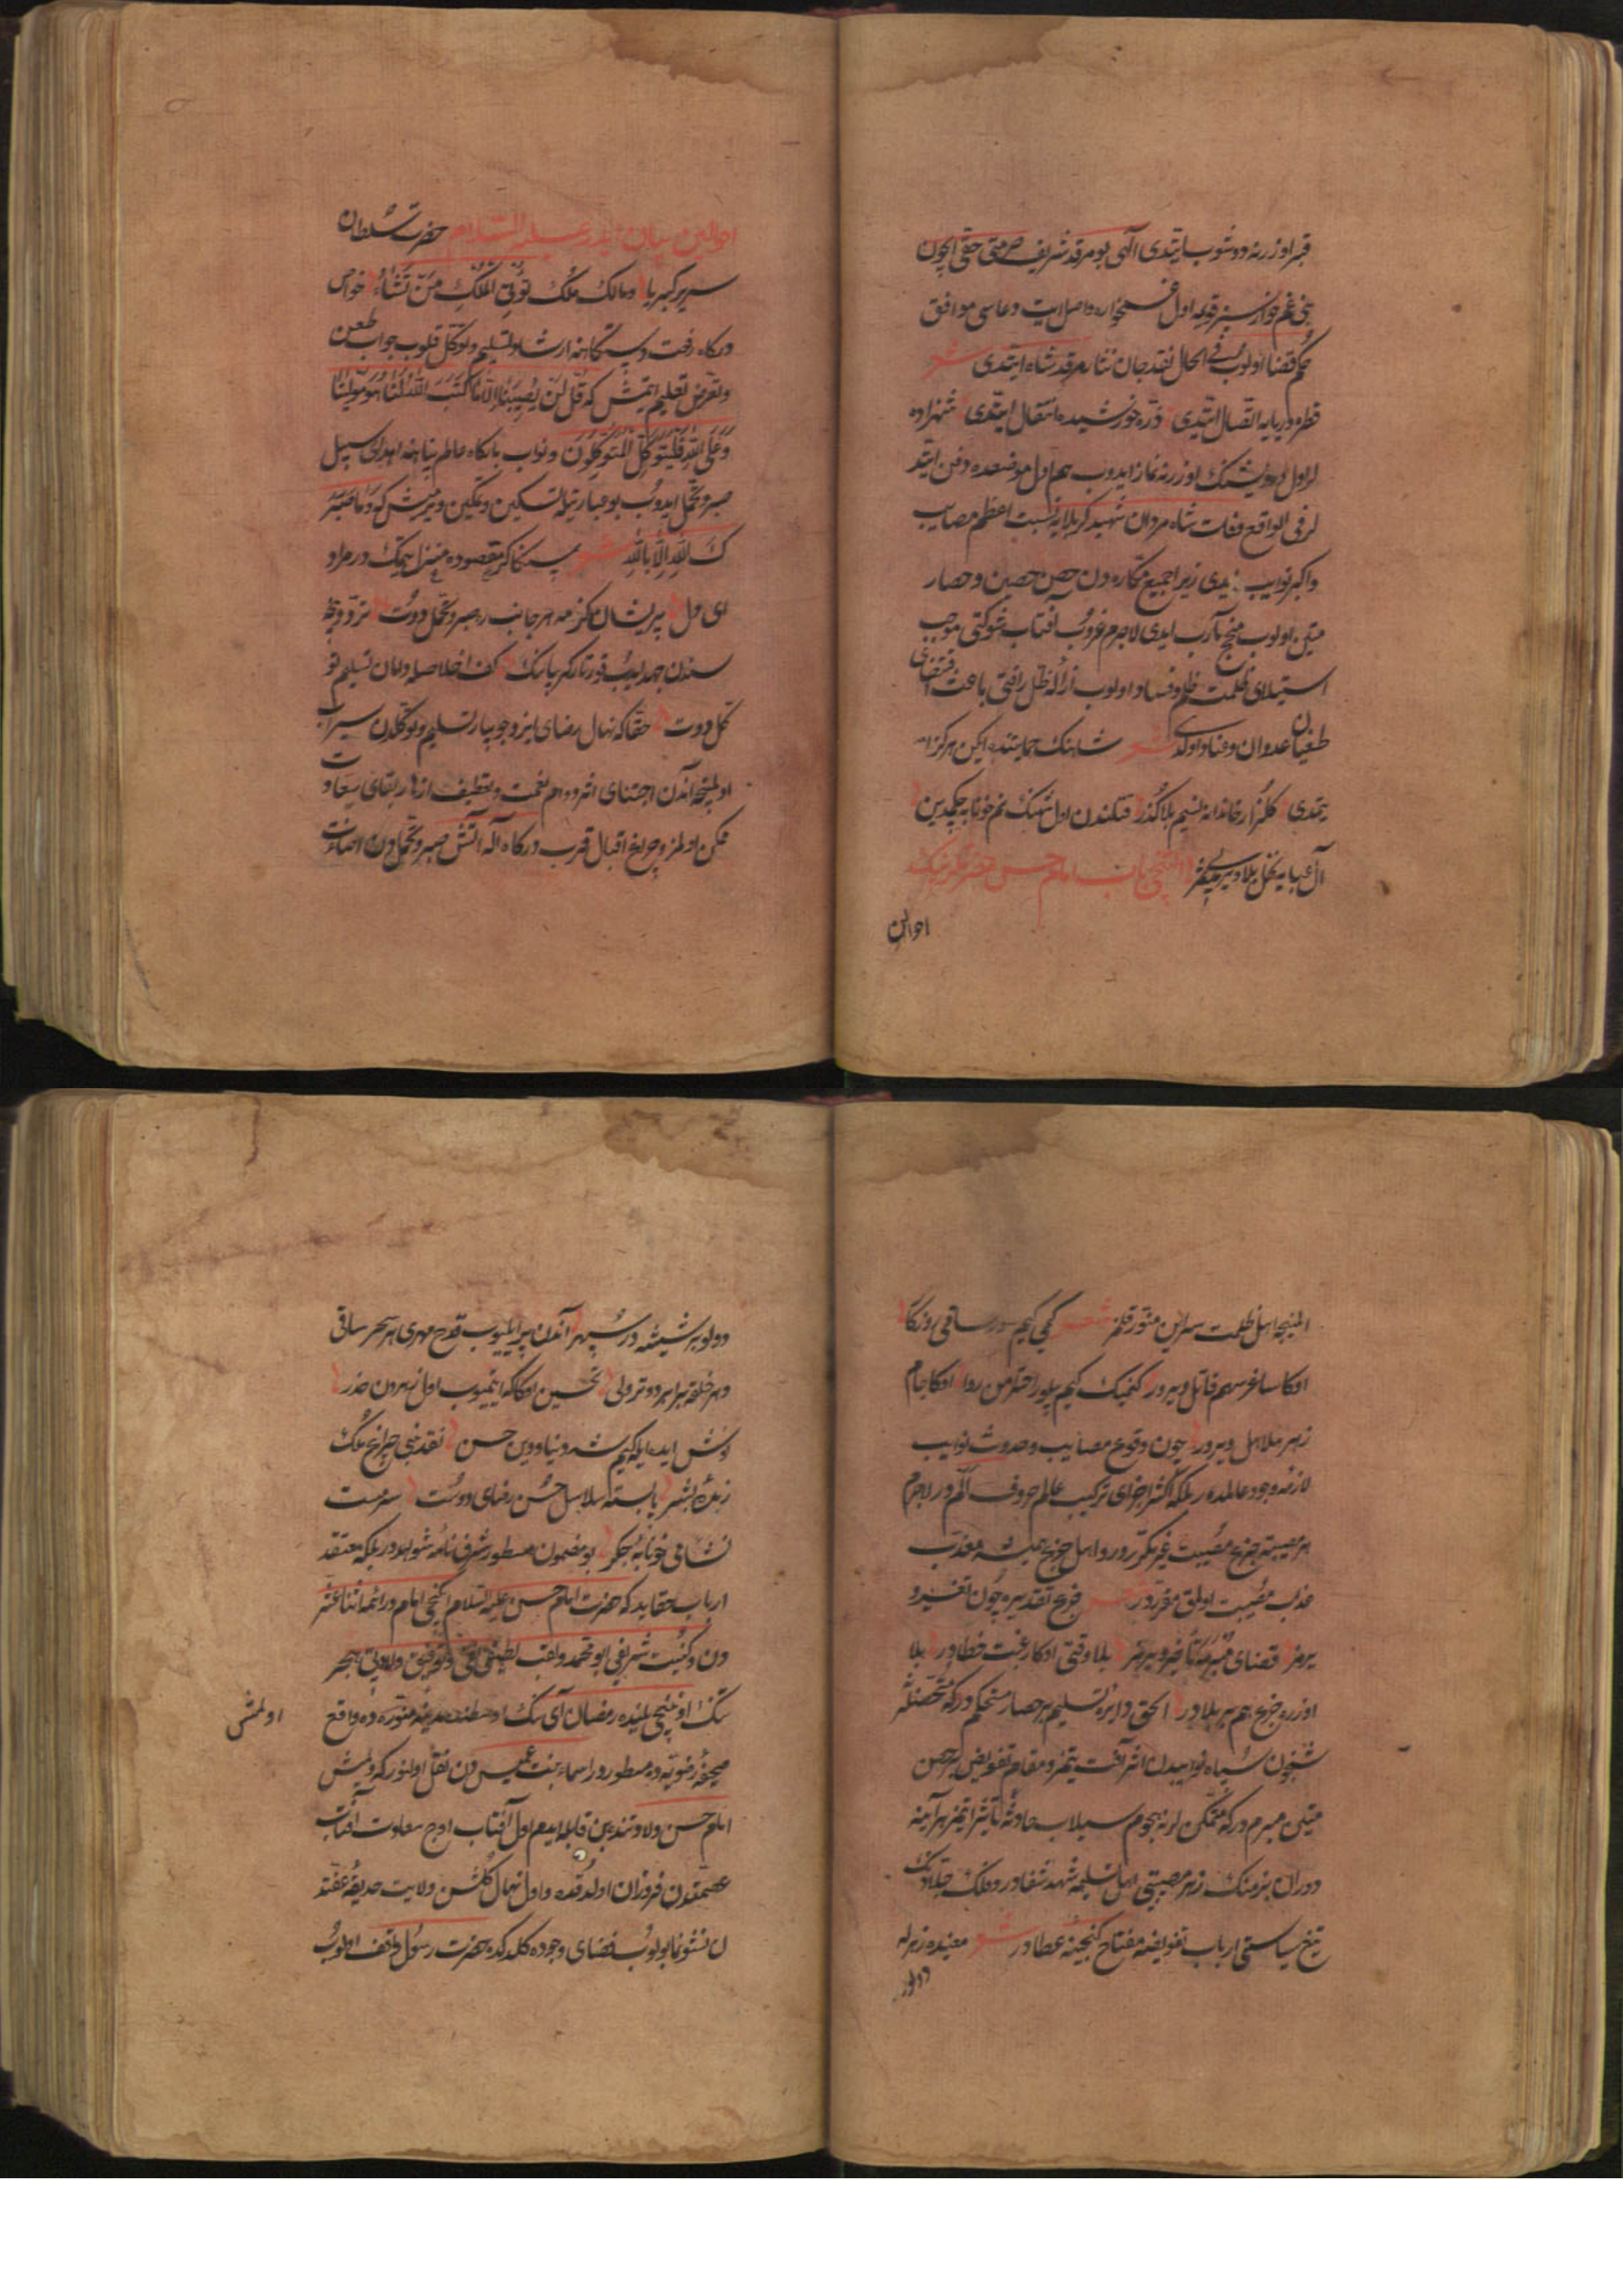 قبر اوزرنه دوشوب ایتدی الهی بو مرقد شریف حرمتی حقی ایچون
بنی غمخوارسز قویمه اول
حکم قضا اولوب فی الحال نقد جان نثار مرقد شاه ایتدی شعر
قطره دریایه اتصال ایتدی ذره خورشیده انتقال ایتدی شهزاده
لر اول درویشنک اوزرنه نماز ایدوب هم اول موضعده دفن ایتد
لر فی الواقع وفات شاه مردان شهید کربلایه نسبت اعظم مصایب
واکبر نوایب ایدی زیرا جمیع مکاره دن حصن حصین و حصار
متین اولوب منجح مآرب ایدی لاجرم غروب آفتاب شوکتی موجب
استیلای ظلمت ظلم و فساد اولوب ازاله ظل رافتی باعث
طغیان عدوان و عناد اولدی شعر شاهنک حمایتنده ایکن هرکز
یتمدی کلزار خاندانه نسیم بلا گذر قتلندن اول شهنک نم خونابه چکدین
آل عبایه نخل بلا ویردی ثمر ایکنجی باب امام حسن حضرتلرینک
احوالن
احوالین بیان ایدر علیه السلام حضرت سلطان
سریر کبریا و مالک ملک تؤتی الملک من تشاء خواص
درکاه رفعت دستکاهنه ارشاد تسلیم و توکل قلوب جواب طعن
و تعرض تعلیم ایتمش که قل لن یصیبنا الا ما کتب الله لنا هو مولینا
وعلی الله فلیتوکل المتوکلون و نواب بارکاه عالم پناهنه اهدای سبیل
صبر و تحمل ایدوب بو عبارتیله تسکین و تمکین ویرمش که وما صبر
ک لله الا بالله شعر سنکا کر مقصوده منزل ایتمک در مراد
ای دل پریشان کزمه هر جانب ره صبر و تحمل دوت تردد وجه
سندن جهد ایدوب قورتار کریبانک کف اخلاصله دامان تسلیم تو
کل دوت حقا که نهال رضای ایزد جویبار تسلیم و توکلدن سیراب
اولمینجه آندن اجتنای اثمر دوام نعمت و تقطیف ازهار بقای سعادت
ممکن اولمز و چراغ اقبال قرب درکاه اله آتش صبر و تحملدن اضائت
المینجه اهل ظلمت سراین منور قلمز شعر کمی کیم سور ساقی روزکا
اوکا ساغر سم قاتل ویرور کیمنک کیم بیلور احترامن روا اوکا جام
زهر هلاهل ویرور چون وقوع مصایب و حدوث نوایب
لازمه وجود عالمده ر بلکه اکثر اجزای ترکیب عالم حروف الم در لاجرم
هر مصیبته جزع مصیبت غیر مکرردر و اهل جزع همیشه معذب
عذاب مصیبت اولمق مقرردر شعر جزع تقدیره چون تغییر و
یرمز قضای مبرمه تأخیر ویرمز بلا وقتی اوکا رغبت خطادر بلا
اوزره جزع هم بر بلادر الحق دایره تسلیم بر حصار مستحکم درکه متحصنلرنه
شبیخون سپاه نوایبدن اثر آفت یتمز و مقام تفویض بر حصن
متین مبرم درکه متمکن لرنه هجوم سیلاب حادثه تأثیر ایتمز هر آینه
دوران بزمنک زهر مصیبتی اهل تسلیمه شهد شفادر و فلک جلادینک
تیغ سیاستی ارباب تفویضه مفتاح کنجینه عطادر شعر معنیده زهرله
دولو
دولو بر شیشه در سپهر آندن پر ایلیوب قدح مهری هر سحر ساقی
دهر خلقه برابر دوتر ولی تحسین اوکا که ایتمیوب اول زهردن حذر
نوش ایده ایله کیم شه دنیا و دین حسن نقد نبی چراغ ملک
زبده بشر پابسته سلاسل حسن رضای دوست سرمست
نشأه خونابه جکر بو مضمون مسطور شرف نامه شواهددر بلکه معتقد
ارباب عقاید که حضرت امام حسن علیه السلام ایکنجی امام در ائمه اثنا عشر
دن و کنیت شریفی ابو محمد و لقب لطیفی تقی و ولادتی هجر
تنک اوچنجی ییلنده رمضان آی نک اوسطنده مدینه منوره ده واقع
اولمش
صحیفه رضویه ده مسطوردر اسماء بنت عمیس دن نقل اولنور که دیمش
امام حسن ولادتنده بن قابله ایدم اول آفتاب اوج سعادت آفتاب
عصمتدن فروزان اولدقده و اول نهال کلشن ولایت حدیقه عفتد
ن نشو نما بولوب فضای وجوده کلدکده حضرت رسول واقف اولوب